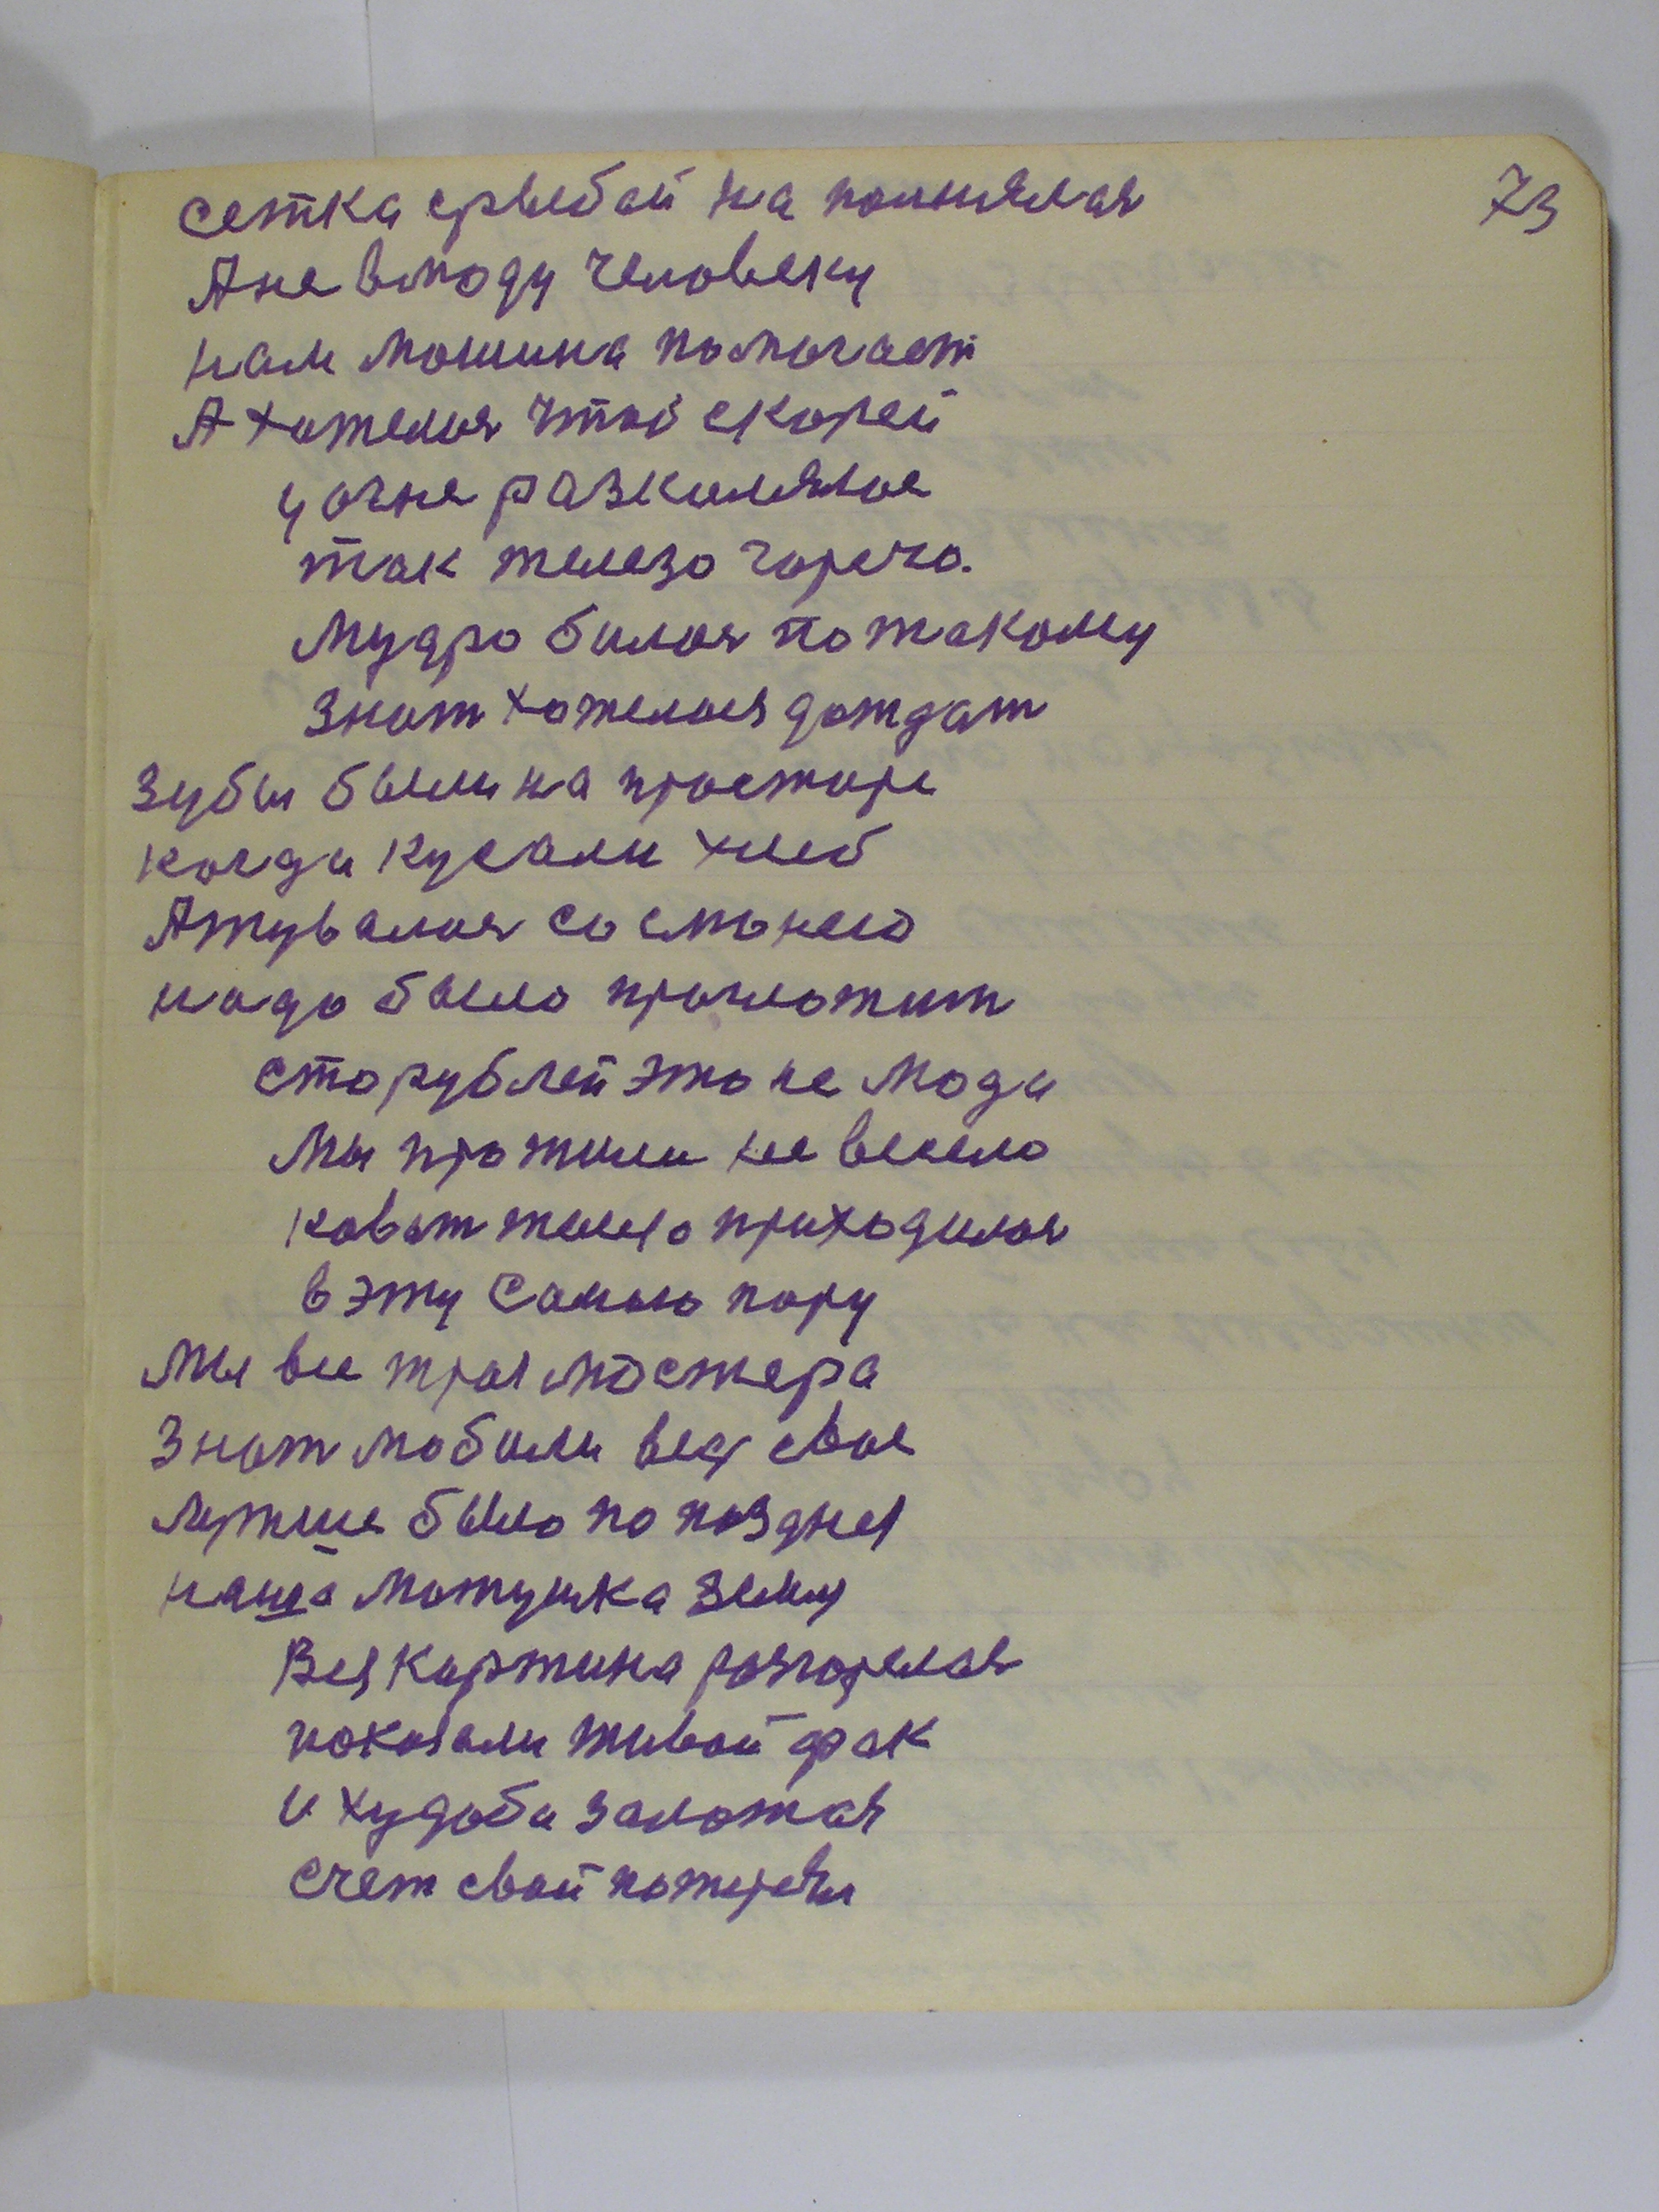 73
сетка срыбай на полнялася
А не вмоду человеку
нам мошина помогает
А хотелося чтоб скорей
у огне разколялое
так железо горечо.
Мудро билося по такому
Знат хотелося дождат
Зубы были на просторе
когда кусали хлеб
Атувалося со стонего
надо было проглотит
сто рублей это не мода
Мы прожили не весело
коват приходилося
в эту самыю пору
Мы все троя мостера
Знат мобили все свое
Лутше было по поздней
наша мотушка Земля
Вся картина розгорелося
показали живой фак
и худоба золотая
счет свой потеряли